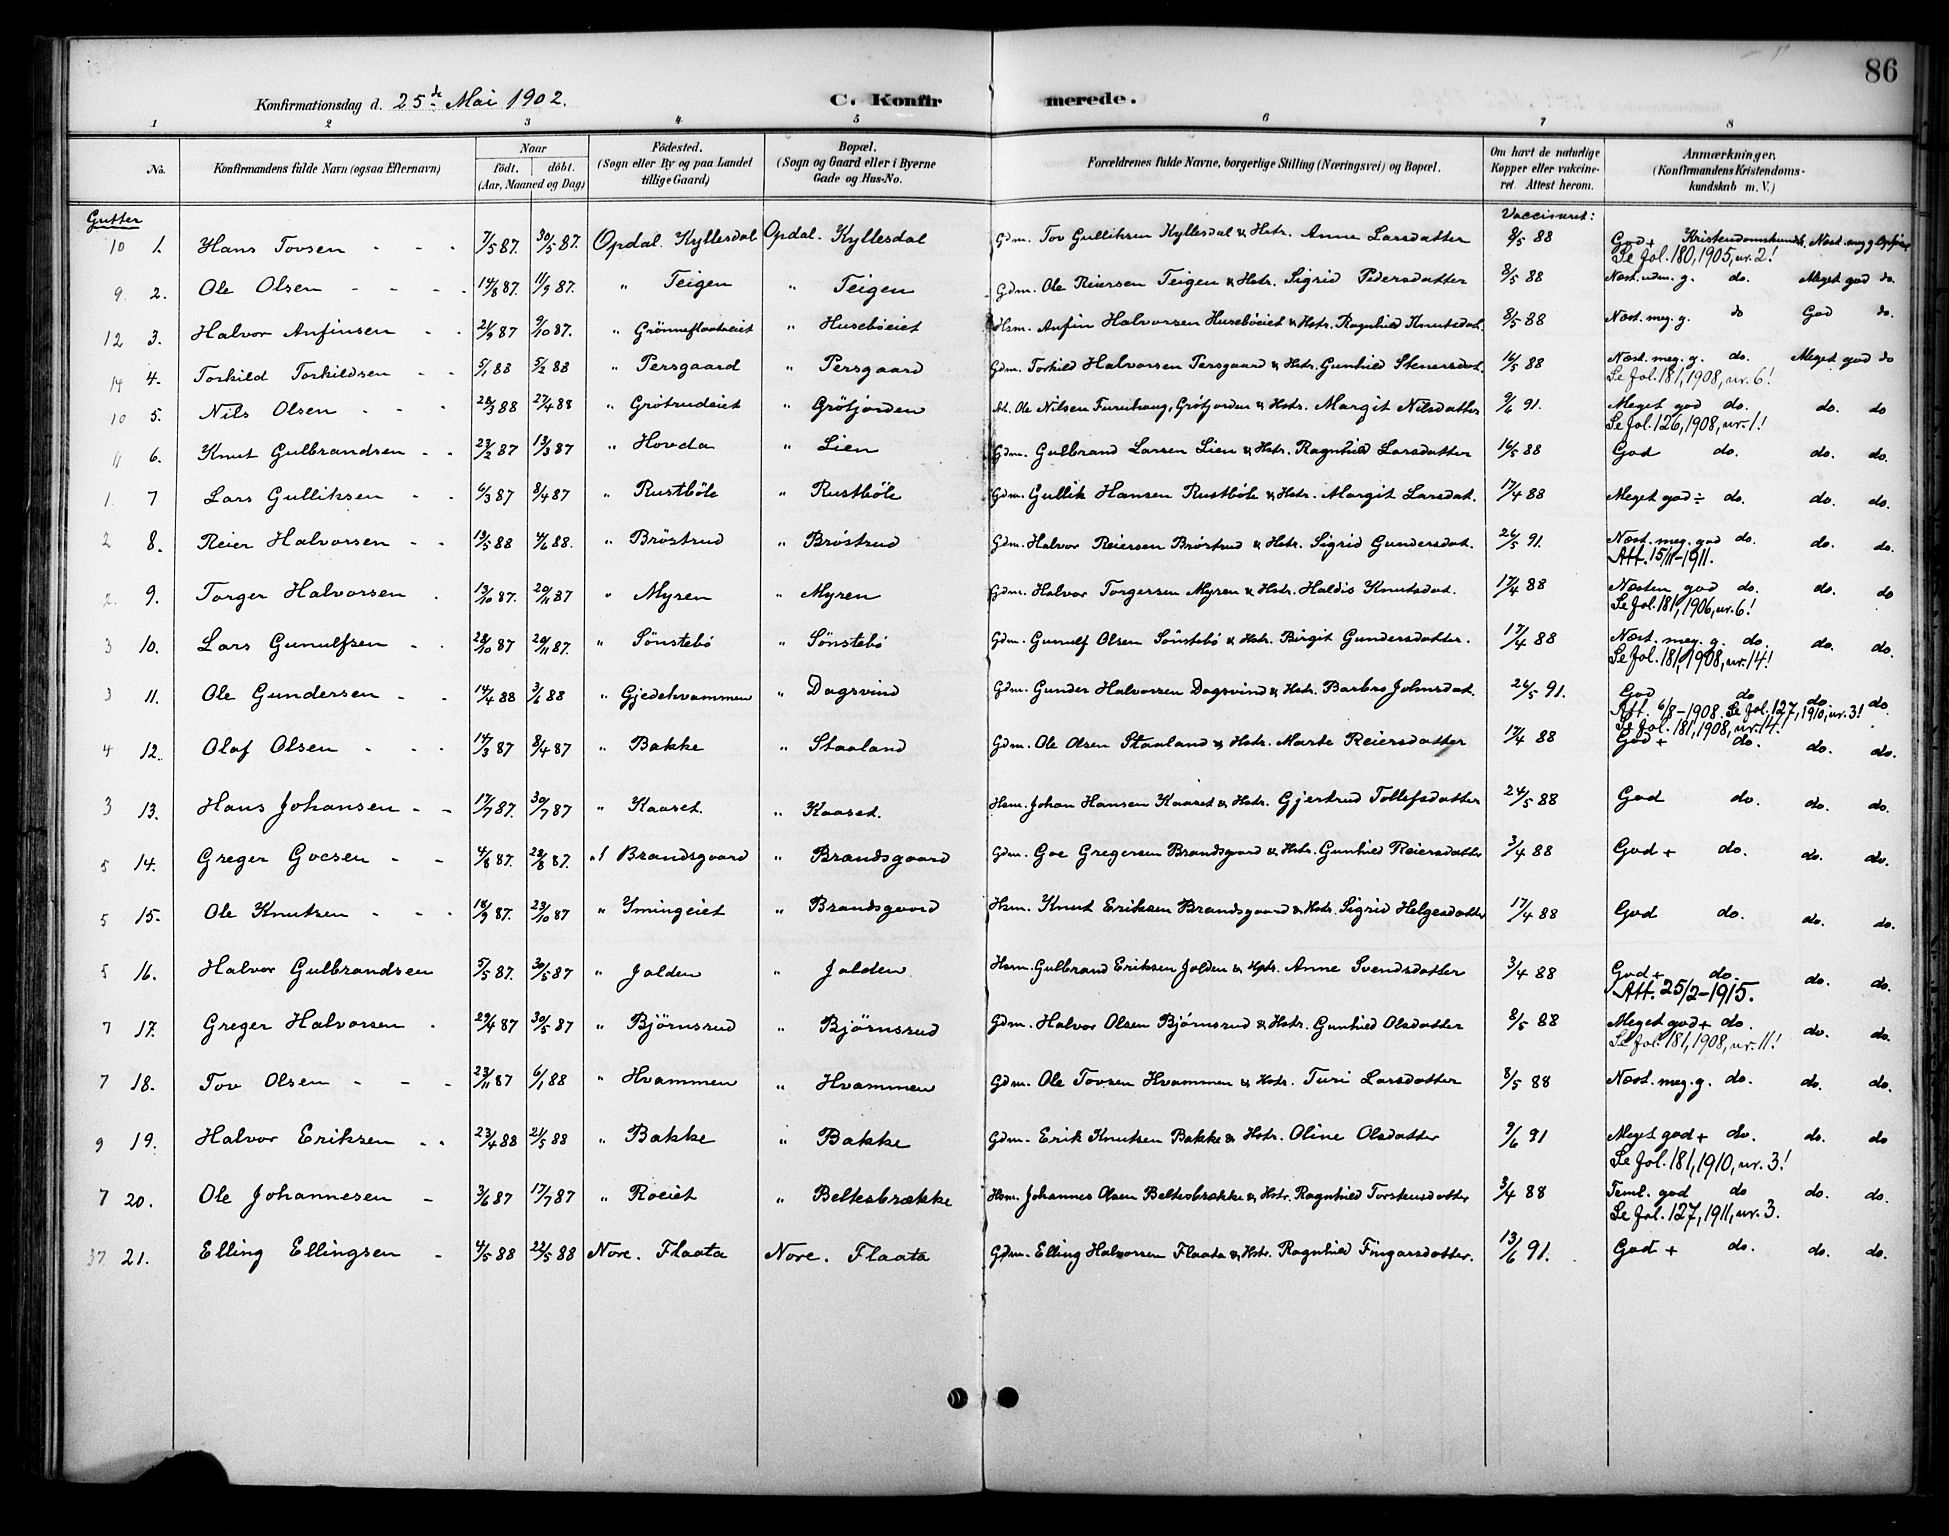 86
Konfirmationsdag d. 25de Mai 1902. C. Konfirmerede.
1 2 3 4 5 6 7 8
No. Konfirmandens fulde Navn (ogsaa Efternavn) Naar født. døbt. (Aar, Maaned og Dag) Fødested. (Sogn eller By og paa Landet tillige Gaard) Bopæl. (Sogn og Gaard eller i Byerne Gade og Hus-No. Forældrenes fulde Navne, borgerlige Stilling (Næringsvei) og Bopæl. Om havt de naturlige Kopper eller vakcineret. Attest herom. Anmærkninger. (Konfirmandens Kristendomskundskab m. V.)
Gutter Vaccineret:
10 1. Hans Tovsen - - - 7/5 87. 30/5 87. Opdal. Kyllesdal Opdal. Kyllesdal Gdm. Tov Gulliksen Kyllesdal & Hstr. Anne Larsdatter 8/5 88 God + Kristendomskundsk.
Se Jol. 180, 1905, nr. 2!
9. 2. Ole Olsen - - - - 14/8 87. 11/9 87. " Teigen " Teigen Gdm. Ole Reiersen Teigen & Hstr. Sigrid Pedersdatter 8/5 88 do. Meget god do.
12 3. Halvor Anfinsen - - 21/9 87 9/10 87. " Grønneflaateiet " Husebøeiet Hsm. Anfin Halvorsen Husebøeiet & Hstr. Ragnhild Knutsdat. 8/5 88 Næst. meg. g. do God do.
14 4. Torkild Torkildsen - - 5/1 88 5/2 88 " Persgaard " Persgaard Gdm. Torkild Halvorsen Persgaard & Hstr. Gunhild Stenersdat. 16/5 88 Næst. meg. g. do. Meget god do
Se Jol. 181, 1908, nr. 6!
10 5. Nils Olsen - - - 28/3 88 27/4 88 " Grøtrudeiet " Grøtjorden Ole Nilsen Furuhaug, Grøtjorden & Hstr. Margit Nilsdatter 9/6 91. Meget god do. do. do
Se Jol. 126, 1908, nr. 1!
11 6. Knut Gulbrandsen - - 23/2 87 13/3 87 " Hovda " Lien Gdm. Gulbrand Larsen Lien & Hstr. Ragnhild Larsdatter 16/5 88 God do. do. do.
1. 7 Lars Gulliksen - - 6/3 87 8/4 87 " Rustbøle " Rustbøle Gdm. Gullik Hansen Rustbøle & Hstr. Margit Larsdat. 17/4 88 Meget god ÷ do. do. do.
2 8. Reier Halvorsen - - 19/5 88 4/6 88. " Brøstrud " Brøstrud Gdm. Halvor Reiersen Brøstrud & Hstr. Sigrid Gundersdat. 26/5 91. Næst. meg. god do. do. do.
Att. 15/11-1911.
2. 9. Torger Halvorsen - 13/10 87. 20/11 87 " Myren " Myren Gdm. Halvor Torgersen Myren & Hstr. Haldis Knutsdat. 17/4 88 Næsten god do. do. do
Se Jol. 181, 1906, nr. 6!
3 10. Lars Gunulfsen - - 28/10 87 20/11 87. " Sønstebø " Sønstebø Gdm. Gunulf Olsen Sønstebø & Hstr. Birgit Gundersdatter. 17/4 88 Næst. meg. g. do. do. do.
Se Jol. 181, 1908, nr. 14!
3 11. Ole Gundersen - - 14/4 88 3/6 88 " Gjedekvammen " Dagsvind Gdm. Gunder Halvorsen Dagsvind & Hstr. Barbro Johnsdat. 26/5 91. God do do. do.
Att. 6/8-1908. Se Jol. 127, 1910, nr. 3!
Se Jol. 181, 1908, nr. 14!
4 12. Olaf Olsen - - - 14/3 87 8/4 87 " Bakke " Staaland Gdm. Ole Olsen Staaland & Hstr. Marte Reiersdatter 17/4 88 God + do. do. do.
3 13. Hans Johansen - - 17/7 87. 30/7 87 " Kaaset. " Kaaset. Hsm. Johan Hansen Kaaset & Hstr. Gjertrud Tollefsdatter 24/5 88 God do. do. do.
5 14. Greger Goesen - - 4/8 87. 28/8 87. " Brandsgaard " Brandsgaard Gdm. Goe Gregersen Brandsgaard & Hstr. Gunhild Reiersdatter 3/4 88 God + do. do. do.
5 15. Ole Knutsen - - - 18/9 87. 23/10 87 " Ymingeiet " Brandsgaard Hsm. Knut Eriksen Brandsgaard & Hstr. Sigrid Helgesdatter 17/4 88 God do. do. do.
5 16. Halvor Gulbrandsen 5/5 87. 30/5 87 " Jalden " Jalden Hsm. Gulbrand Eriksen Jalden & Hstr. Anne Svendsdatter 3/4 88 God + do. do. do.
Att. 25/2-1915.
7 17. Greger Halvorsen - 29/4 87 30/5 87 " Bjørnsrud " Bjørnsrud Gdm. Halvor Olsen Bjørnsrud & Hstr. Gunhild Olsdatter 8/5 88 Meget god + do. do. do.
Se Jol. 181, 1908, nr. 11!
7 18. Tov Olsen - - - 23/11 87 6/1 88 " Hvammen " Hvammen Gdm. Ole Tovsen Hvammen & Hstr. Turi Larsdatter 8/5 88 Næst. meg. g. do. do. do.
9 19. Halvor Eriksen - - 23/4 88 21/5 88 " Bakke " Bakke Gdm. Erik Knutsen Bakke & Hstr. Oline Olsdatter 9/6 91 Meget god + do. do. do
Se Jol. 181, 1910, nr. 3!
7 20. Ole Johannesen - 3/6 87 17/7 87 " Roeiet " Beltesbrække Hsm. Johannes Olsen Beltesbrække & Hstr. Ragnhild Torstensdatter 3/4 88 Teml. god do do. do.
Se Jol. 127, 1911, nr. 3.
37 21. Elling Ellingsen - 4/5 88 22/5 88 Nore. Flaata Nore. Flaata Gdm. Elling Halvorsen Flaata & Hstr. Ragnhild Fingarsdatter. 13/6 91. God + do. do. do.